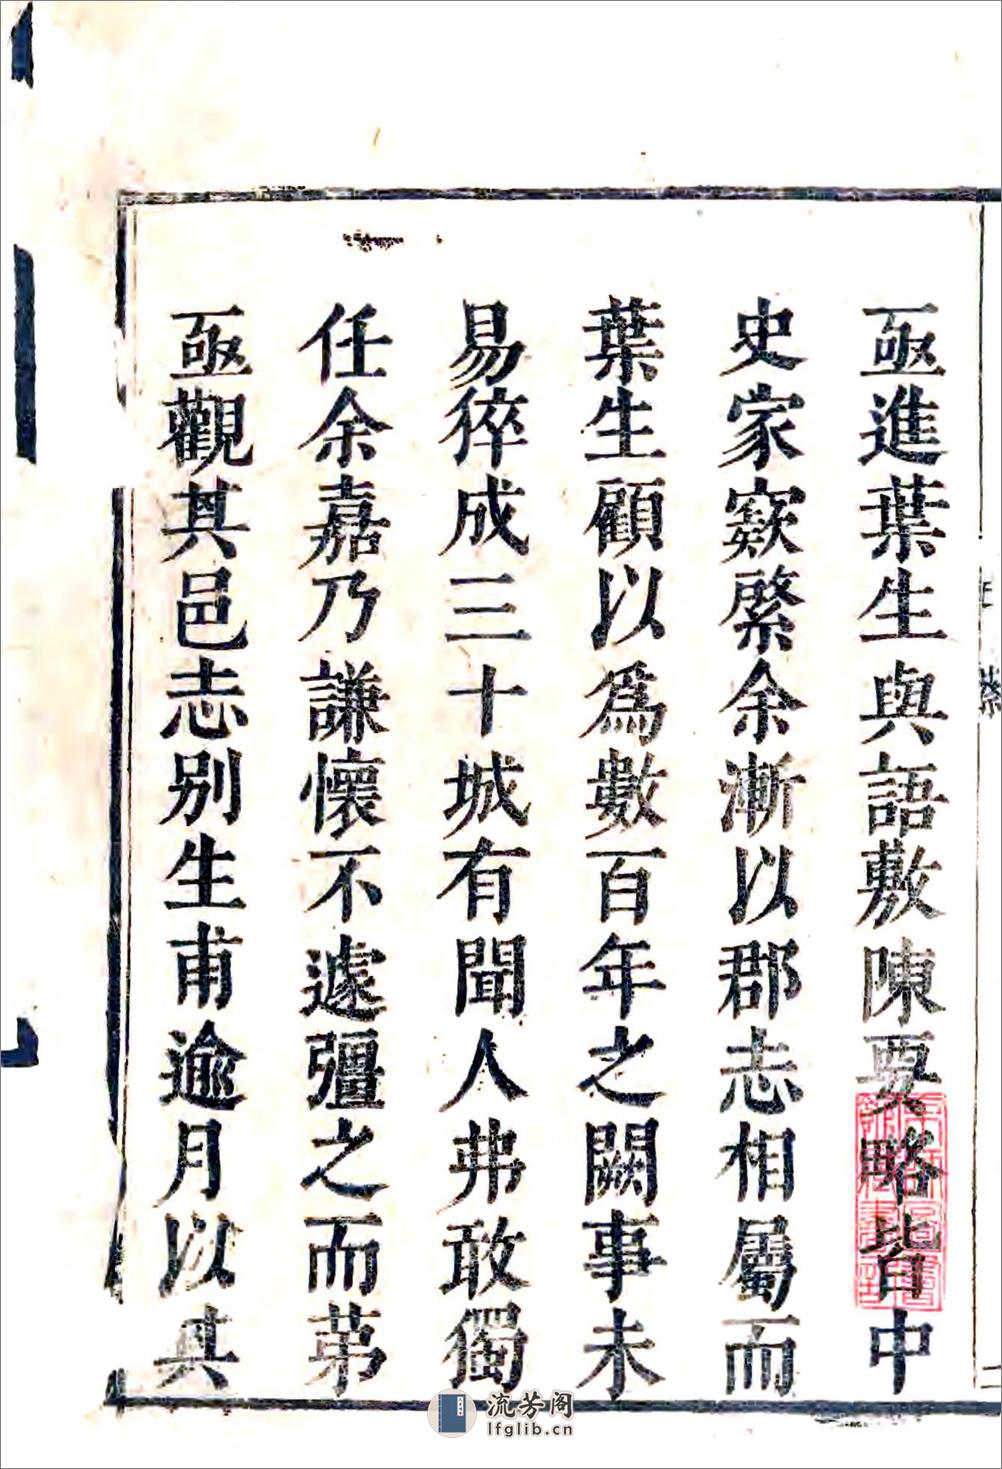 亟進葉生與語敷陳要略皆中
史家窾綮余漸以郡志相屬而
葉生顧以爲數百年之闕事未
易猝成三十城有聞人弗敢獨
任余嘉乃謙懷不遽彊之而第
亟觀其邑志别生甫逾月以其
流芳阁
lfglib.cn